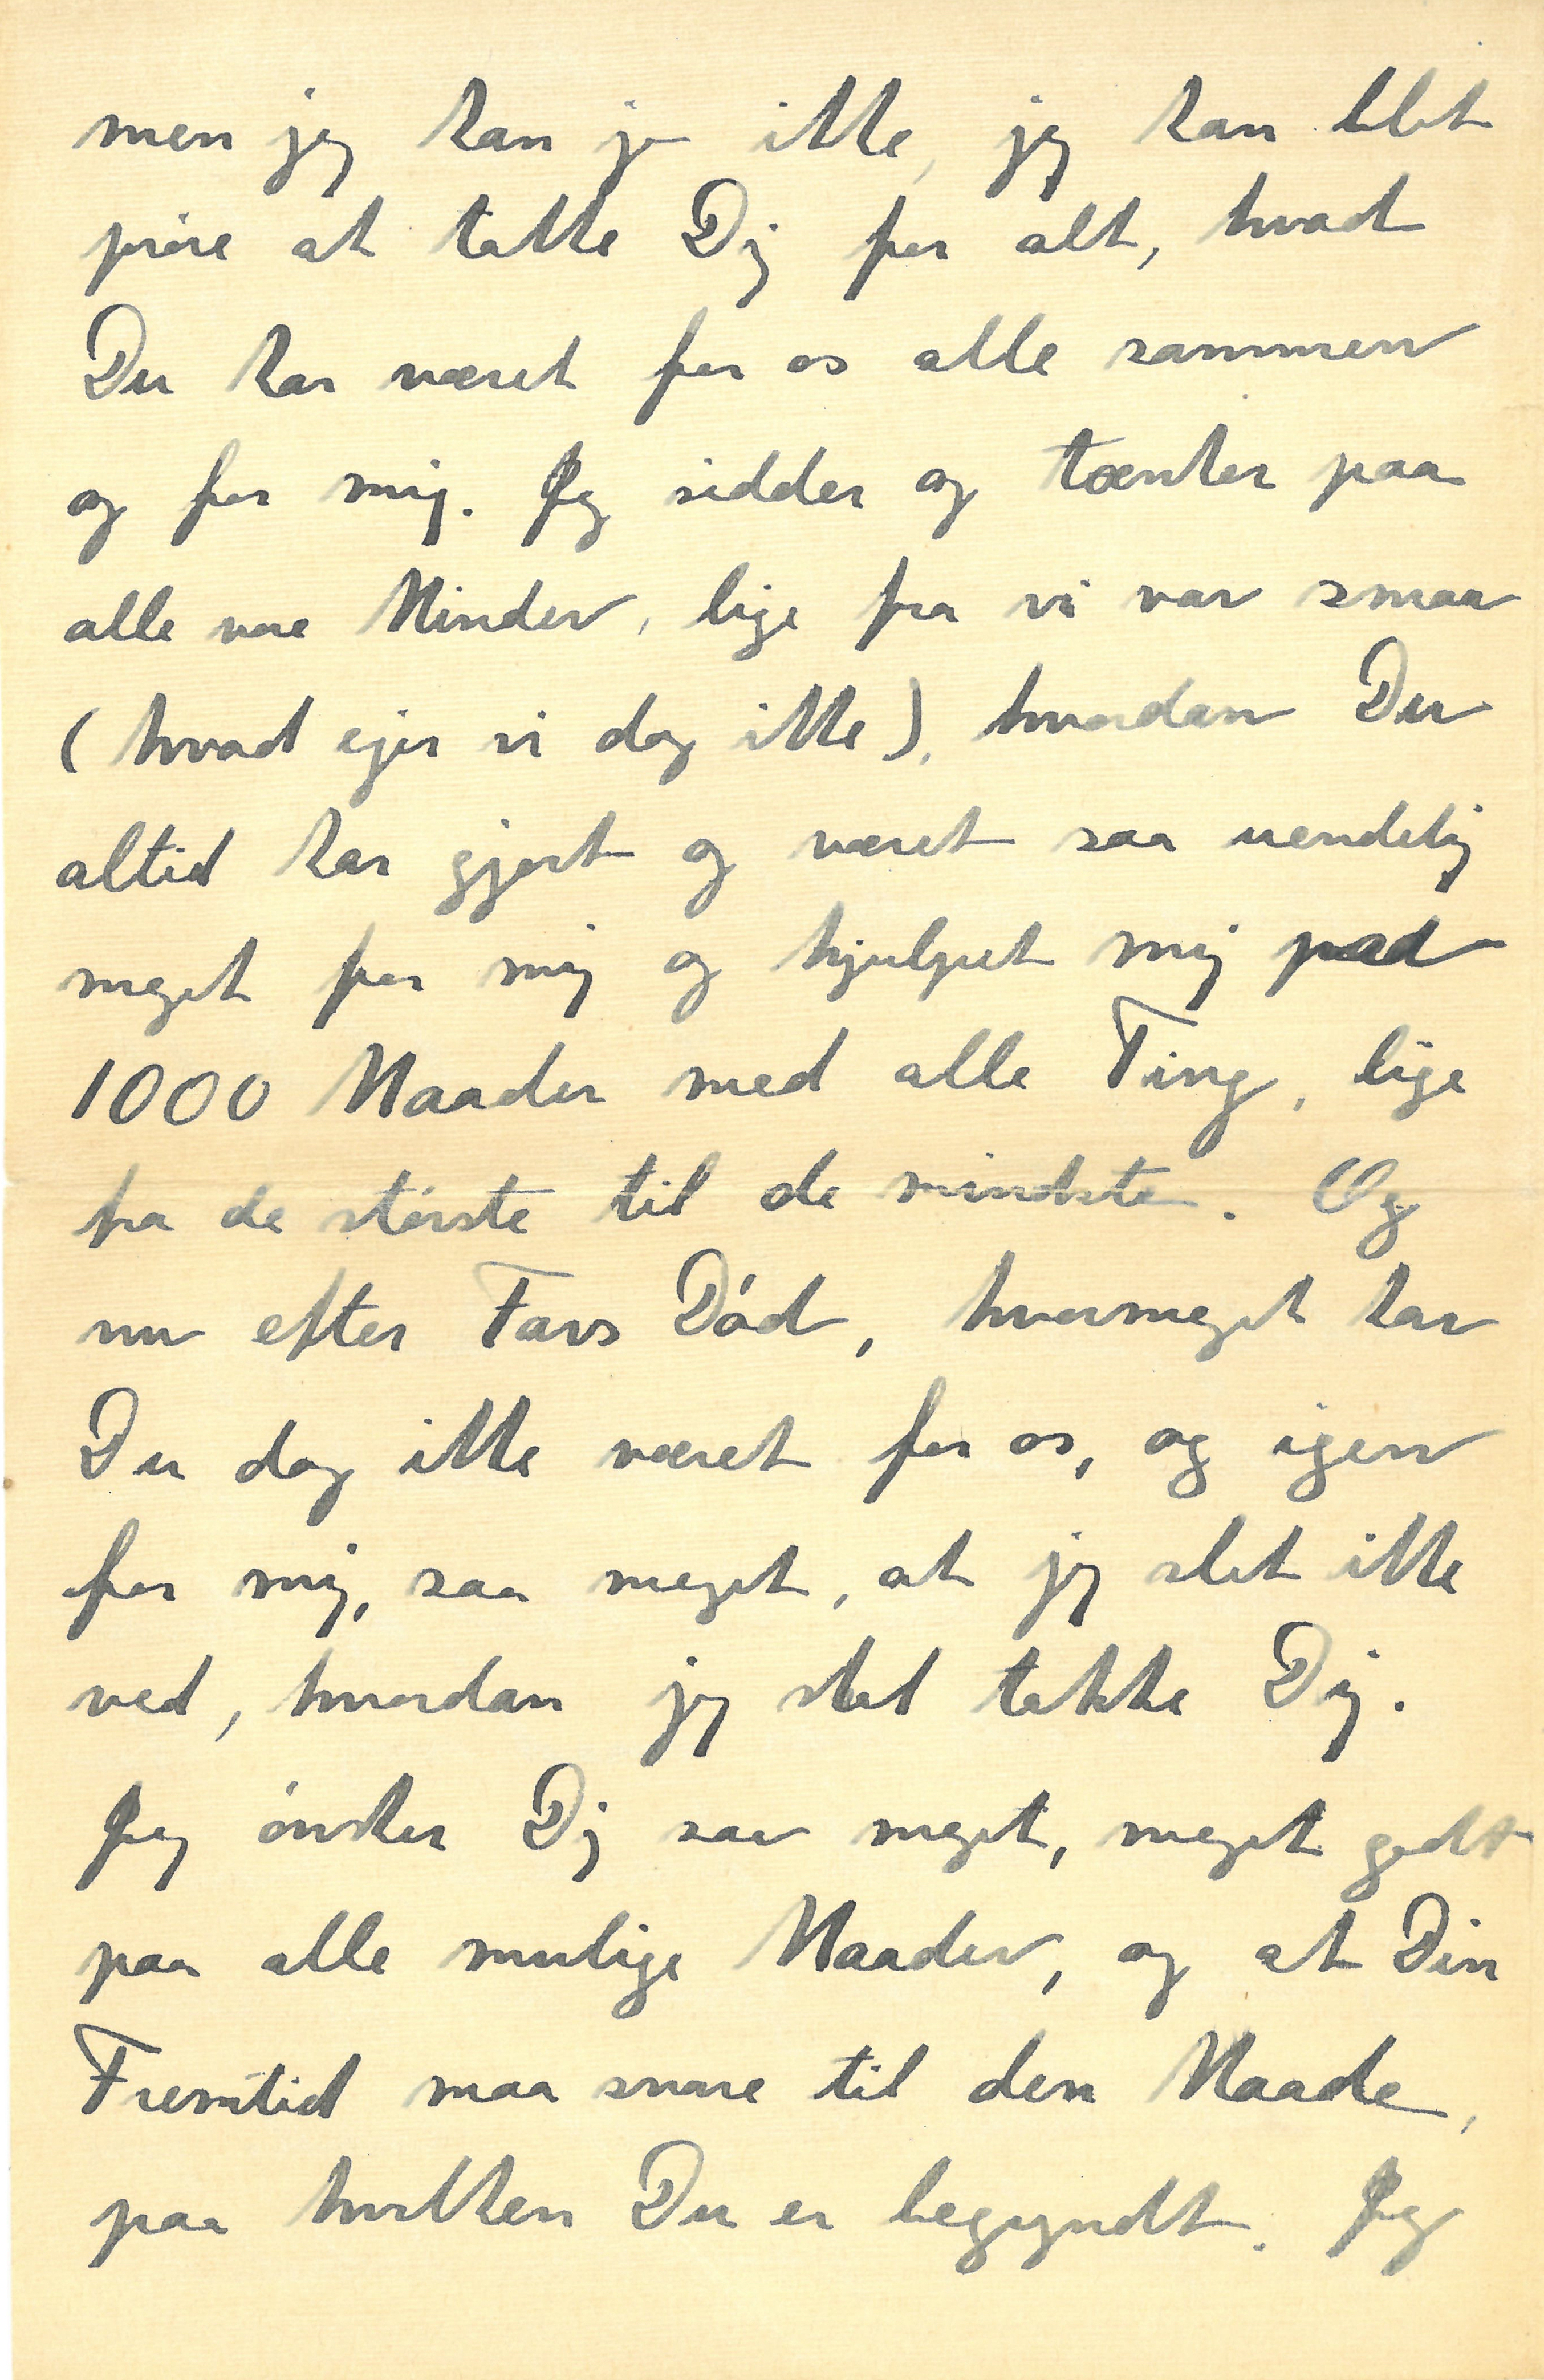 men jeg kan jo ikke, jeg kan blot
prøve at takke Dig for alt, hvad
Du har været for os alle sammen
og for mig. Jeg sidder og tænker paa
alle vore Minder, lige fra vi var smaa
(hvad ejer vi dog ikke), hvordan Du
altid har gjort og været saa uendelig
meget for mig og hjulpet mig paa
1000 Maader med alle Ting, lige
fra de største til de mindste. Og
nu efter Fars Død, hvormeget har
Du dog ikke været for os, og igen
for mig, saa meget, at jeg slet ikke
ved, hvordan jeg skal takke Dig.
Jeg ønsker Dig saa meget, meget godt
paa alle mulige Maader, og at Din
Fremtid maa svare til den Maade,
paa hvilken Du er begyndt. Jeg